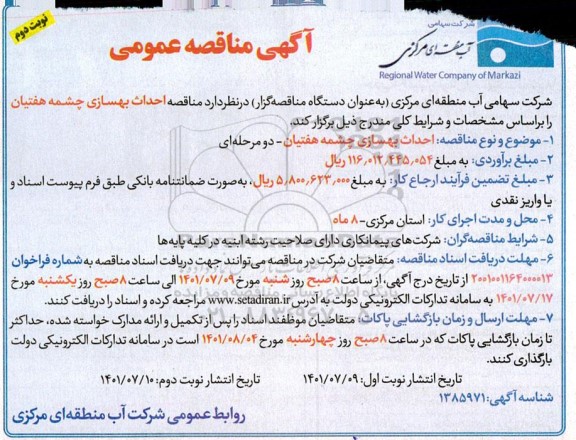 نوبت دوم
شرکت سهامی
آب منطقه‌ای مرکزی
Regional Water Company of Markazi
آگهی مناقصه عمومی
شرکت سهامی آب منطقه‌ای مرکزی (به‌عنوان دستگاه مناقصه‌گزار) درنظردارد مناقصه احداث بهسازی چشمه هفتیان
را براساس مشخصات و شرایط کلی مندرج ذیل برگزار کند.
۱- موضوع و نوع مناقصه: احداث بهسازی چشمه هفتیان - دو مرحله‌ای
۲- مبلغ برآوردی: به مبلغ ۱۱۶,۰۱۲,۴۴۵,۰۵۴ ریال
۳- مبلغ تضمین فرآیند ارجاع کار: به مبلغ ۵,۸۰۰,۶۲۳,۰۰۰ ریال، به‌صورت ضمانتنامه بانکی طبق فرم پیوست اسناد و
یا واریز نقدی
۴- محل و مدت اجرای کار: استان مرکزی- ۸ ماه
۵- شرایط مناقصه‌گران: شرکت‌های پیمانکاری دارای صلاحیت رشته ابنیه در کلیه پایه‌ها
۶- مهلت دریافت اسناد مناقصه: متقاضیان شرکت در مناقصه می‌توانند جهت دریافت اسناد مناقصه به شماره فراخوان
۲۰۰۱۰۰۱۱۶۴۰۰۰۰۱۳ از تاریخ درج آگهی، از ساعت ۸ صبح روز شنبه مورخ ۱۴۰۱/۰۷/۰۹ الی ساعت ۸ صبح روز یکشنبه مورخ
۱۴۰۱/۰۷/۱۷ به سامانه تدارکات الکترونیکی دولت به آدرس www.setadiran.ir مراجعه کرده و اسناد را دریافت کنند.
۷- مهلت ارسال و زمان بازگشایی پاکات: متقاضیان موظفند اسناد را پس از تکمیل و ارائه مدارک خواسته شده، حداکثر
تا زمان بازگشایی پاکات که در ساعت ۸ صبح روز چهارشنبه مورخ ۱۴۰۱/۰۸/۰۴ است در سامانه تدارکات الکترونیکی دولت
بارگذاری کنند.
تاریخ انتشار نوبت اول: ۱۴۰۱/۰۷/۰۹ تاریخ انتشار نوبت دوم: ۱۴۰۱/۰۷/۱۰
شناسه آگهی: ۱۳۸۵۹۷۱
روابط عمومی شرکت آب منطقه‌ای مرکزی